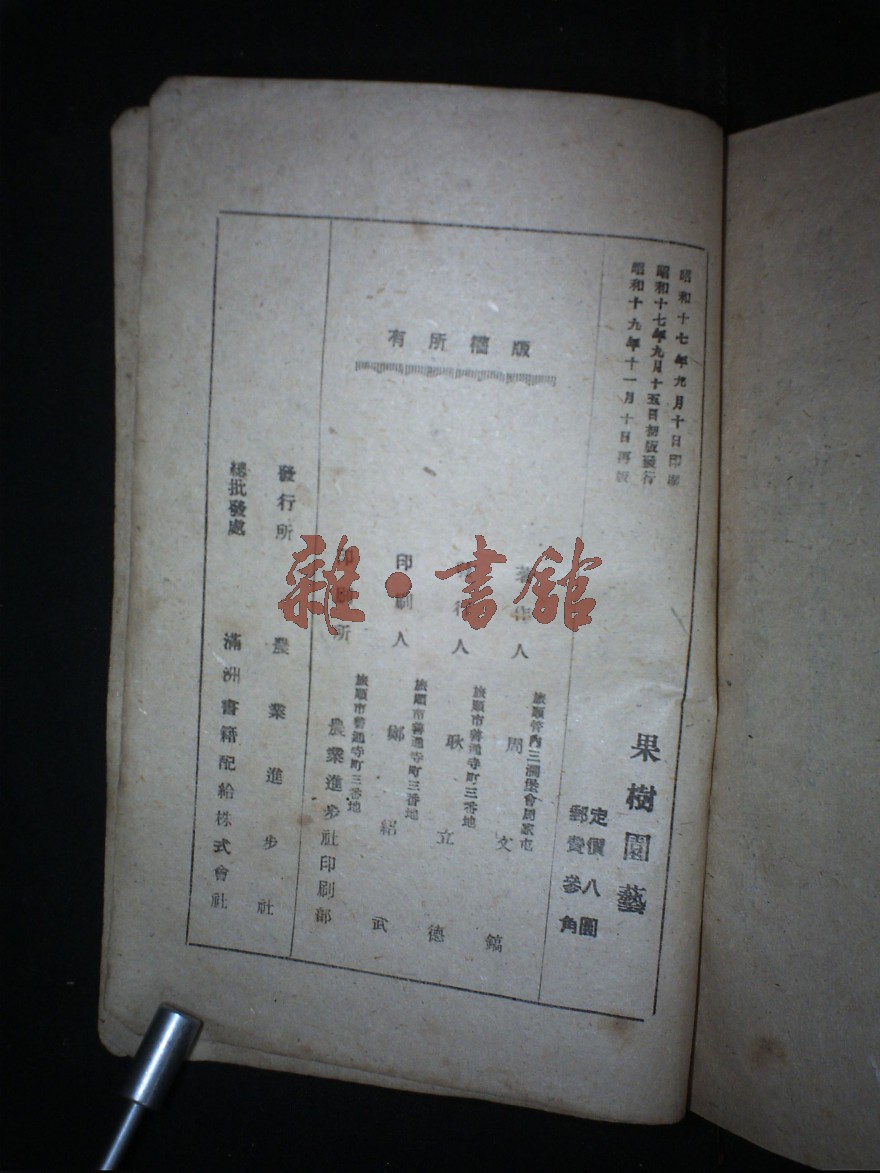 昭和十七年九月十日印刷
昭和十七年九月十五日初版發行
昭和十九年十一月十日再版
果樹園藝
定價八圓
郵費參角
版權所有
著作人
旅順管內三澗堡會周家屯
周文鎬
發行人
旅順市善通寺町三番地
耿立德
印刷人
旅順市善通寺町三番地
鄭紹武
印刷所
旅順市善通寺町三番地
農業進步社印刷部
發行所 農業進步社
總批發處 滿洲書籍配給株式會社
雜·書舘